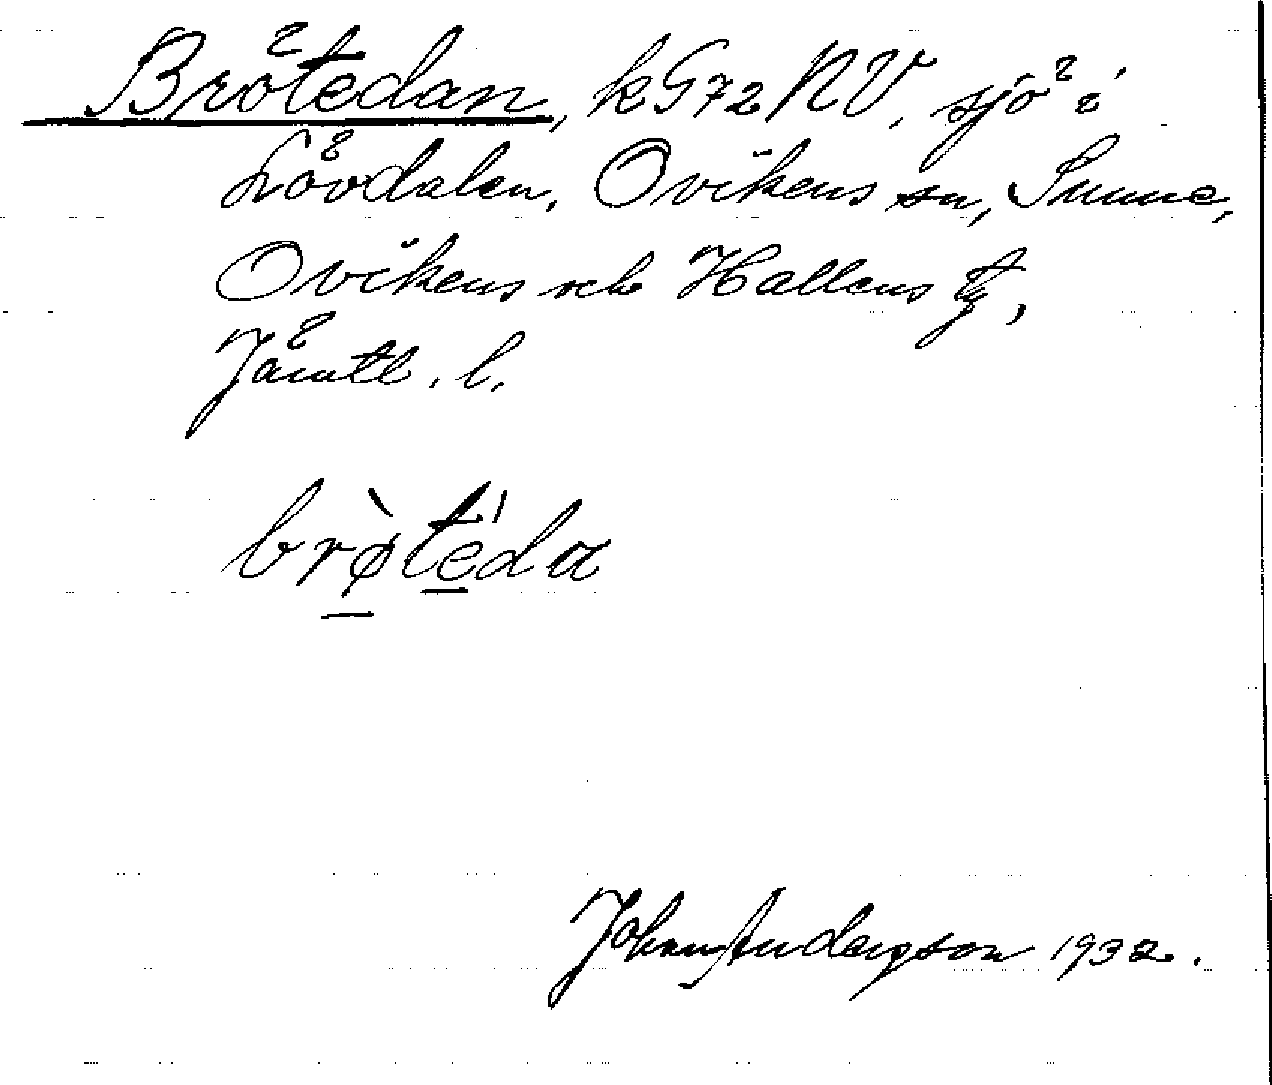 Brötedan, kG72NV, sjö i
Lövdalen, Ovikens sn, Sunne,
Ovikens och Hallens tg,
Jämtl. l.
brø̀te̍da
Johans Andersson 1932.